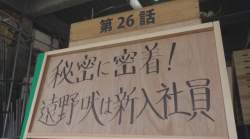 第26話
秘密に密着!
遠野吠は新入社員